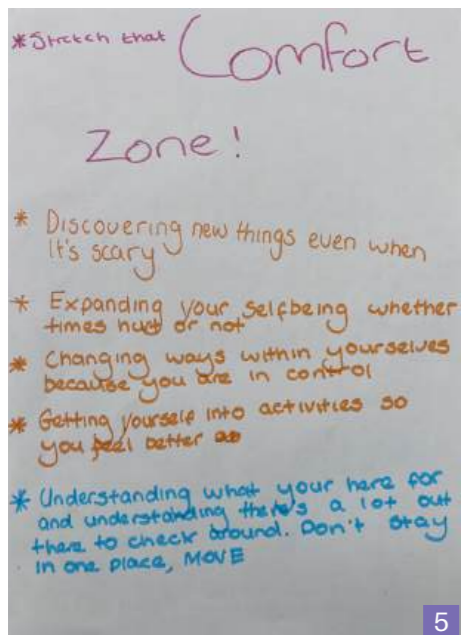 * Stretch that Comfort
Zone!
* Discovering new things even when
It's scary
* Expanding your selfbeing whether
times hurt or not
* Changing ways within yourselves
because you are in control
* Getting yourself into activities so
you feel better
* Understanding what your here for
and understanding there's a lot out
there to check around. Don't stay
in one place, MOVE
5